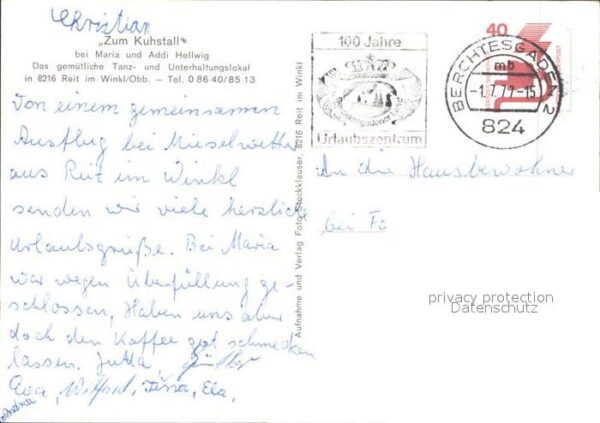 Christian
„Zum Kuhstall“
bei Maria und Addi Hellwig
Das gemütliche Tanz- und Unterhaltungslokal
in 8216 Reit im Winkl/Obb. – Tel. 0 86 40/85 13
Von einem gemeinsamen
Ausflug bei Mieselwetter
aus Reit im Winkl
senden wir viele herzliche
Urlaubsgrüße. Bei Maria
war wegen Überfüllung ge-
schlossen, Haben uns aber
doch den Kaffee gut schmecken
lassen. Jutta,
Eva, Wilfried, Tina, Ela,
Aufnahme und Verlag Foto Stockklauser, 8216 Reit im Winkl
100 Jahre
Berchtesgadener Land
Urlaubszentrum
BERCHTESGADEN 2
mb
-1.7.77-15
824
40
An die Hausbewohner
bei Fa
privacy protection
Datenschutz